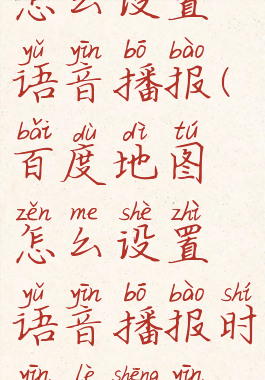 怎么设置
yǔ yīn bō bào
语音播报(
bǎi dù dì tú
百度地图
zěn me shè zhì
怎么设置
yǔ yīn bō bào shí
语音播报时
yīn lè shēng yīn